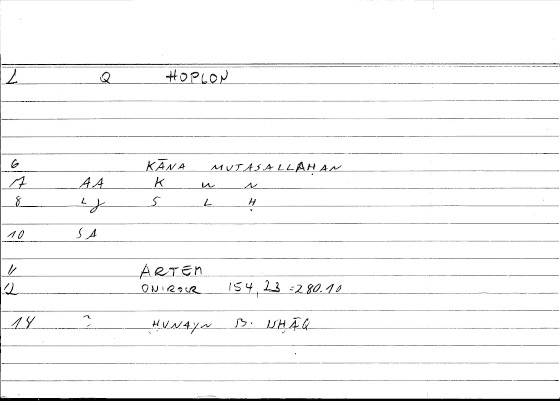 L Q HOPLON
6 KĀNA MUTASALLAḤAN
7 AA K W N
8 LJ S L Ḥ
10 SA
11 ARTEM
12 ONIROCR 154,23 =280.10
14 ? ḤUNAYN B. ISḤĀQ